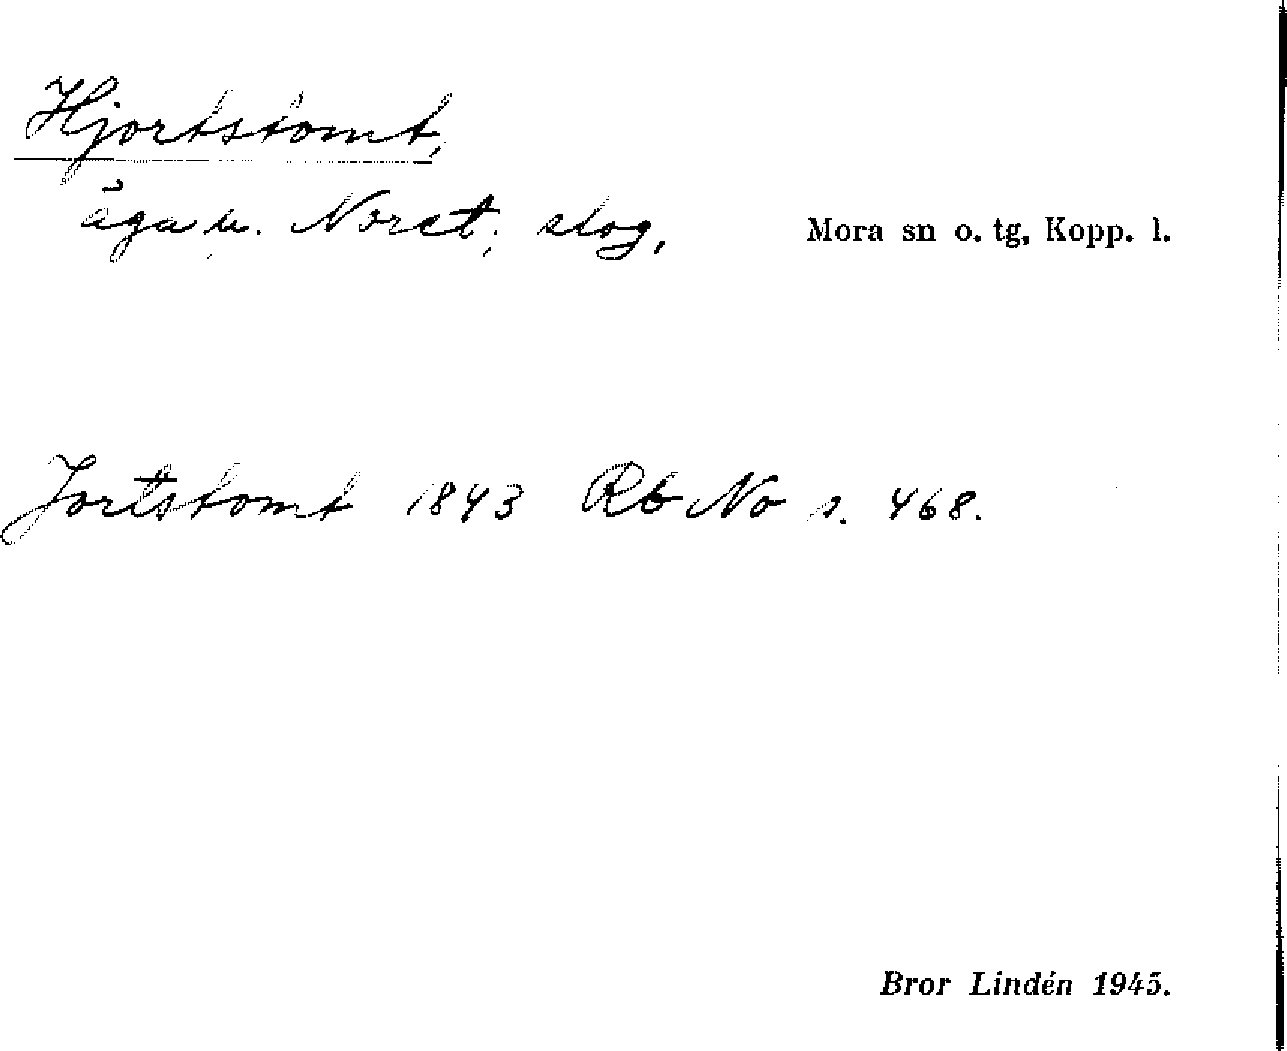 Hjortstomt,
äga u. Noret; slog, Mora sn o. tg, Kopp. l.
Jortstomt 1843 Rb No s. 468.
Bror Lindén 1945.